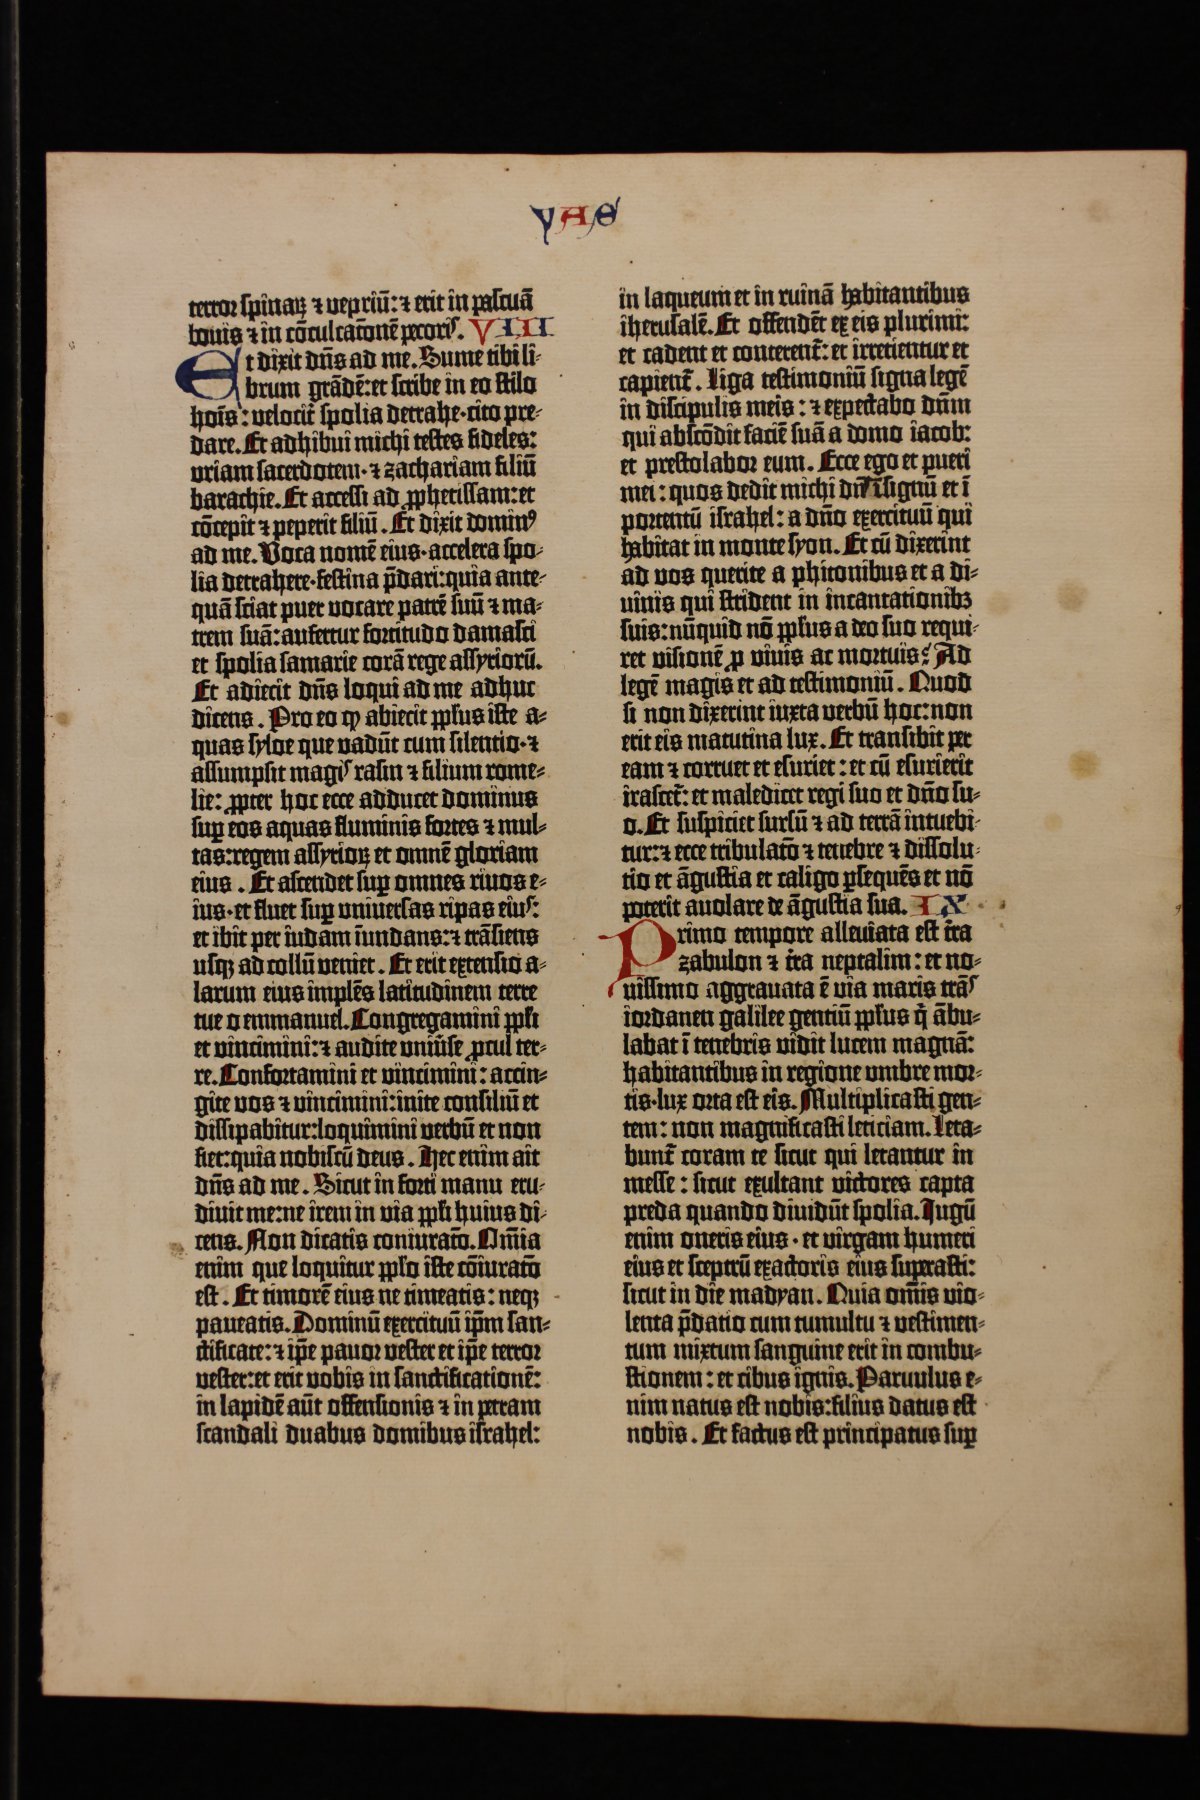 YAS
terror spinaꝝ ⁊ vepriū: ⁊ erit in pascuā
bovis ⁊ in cōculcatōnē pecorꝭ. VIII
Et dixit dn̄s ad me. Sume tibi li-
brum grādē: et scribe in eo stilo
hoīs: velocit̄ spolia detrahe·cito pre-
dare. Et adhibui michi testes fideles:
vriam sacerdotem· ⁊ zachariam filiū
barachie. Et accessi ad ꝓphetissam: et
cōcepit ⁊ peperit filiū. Et dixit dominꝰ
ad me. Voca nomē eius·accelera spo-
lia detrahere·festina p̄dari: quia ante-
quā sciat puer vocare patrē suū ⁊ ma-
trem suā: aufertur fortitudo damasci
et spolia samarie corā rege assyriorū.
Et adiecit dn̄s loqui ad me adhuc
dicens. Pro eo ꝙ abiecit ppl̓us iste a-
quas syloe que vadūt cum silentio·⁊
assumpsit magꝭ rasin ⁊ filium rome-
lie: ꝓpter hoc ecce adducet dominus
suꝑ eos aquas fluminis fortes ⁊ mul-
tas: regem assyrioꝝ et omnē gloriam
eius. Et ascendet suꝑ omnes rivos e-
ius·et fluet suꝑ universas ripas eiuꝭ:
et ibit per iudam īundans: ⁊ trāsiens
usqꝫ ad collū veniet. Et erit extensio a-
larum eius implēs latitudinem terre
tue o emmanuel. Congregamini ppl̓i
et vincimini: ⁊ audite vniūse ꝓcul ter-
re. Confortamini et vincimini: accin-
gite vos ⁊ vincimini: inite consiliū et
dissipabitur: loquimini verbū et non
fiet: quia nobiscū deus. Hec enim ait
dn̄s ad me. Sicut in forti manu eru-
divit me: ne irem in via ppl̓i huius di-
cens. Non dicatis coniuratō. Om̄ia
enim que loquitur ppl̓o iste cōiuratō
est. Et timorē eius ne timeatis: neqꝫ
paveatis. Dominū exercituū ip̄m san-
ctificate: ⁊ ip̄e pavor vester et ip̄e terror
vester: et erit vobis in sanctificationē:
in lapidē aūt offensionis ⁊ in petram
scandali duabus domibus israhel:
in laqueum et in ruinā habitantibus
iherusalē. Et offendēt ex eis plurimi:
et cadent et conterent̄: et irretientur et
capient̄. Liga testimoniū signa legē
in discipulis meis: ⁊ expectabo dn̄m
qui abscōdit faciē suā a domo iacob:
et prestolabor eum. Ecce ego et pueri
mei: quos dedit michi dn̄ꝭ ī signū et ī
portentū israhel: a dn̄o exercituū qui
habitat in monte syon. Et cū dixerint
ad vos querite a phitonibus et a di-
vinis qui strident in incantationibꝫ
suis: nūquid nō ppl̓us a deo suo requi-
ret visionē ꝓ vivis ac mortuis? Ad
legē magis et ad testimoniū. Quod
si non dixerint iuxta verbū hoc: non
erit eis matutina lux. Et transibit per
eam ⁊ corruet et esuriet: et cū esurierit
irascet̄: et maledicet regi suo et dn̄o su-
o. Et suspiciet sursū ⁊ ad terrā intuebi-
tur: ⁊ ecce tribulatō ⁊ tenebre ⁊ dissolu-
tio et āgustia et caligo ꝑsequēs et nō
poterit avolare de āgustia sua. IX
Primo tempore alleviata est t̄ra
zabulon ⁊ t̄ra neptalim: et no-
vissimo aggravata ē via maris trāꝭ
iordanen galilee gentiū ppl̓us q̇ ābu-
labat ī tenebris vidit lucem magnā:
habitantibus in regione umbre mor-
tis·lux orta est eis. Multiplicasti gen-
tem: non magnificasti leticiam. Leta-
bunt̄ coram te sicut qui letantur in
messe: sicut exultant victores capta
preda quando dividūt spolia. Jugū
enim oneris eius· et virgam humeri
eius et sceptrū exactoris eius suꝑasti:
sicut in die madyan. Quia om̄is vio-
lenta p̄datio cum tumultu ⁊ vestimen-
tum mixtum sanguine erit in combu-
stionem: et cibus ignis. Parvulus e-
nim natus est nobis: filius datus est
nobis. Et factus est principatus suꝑ